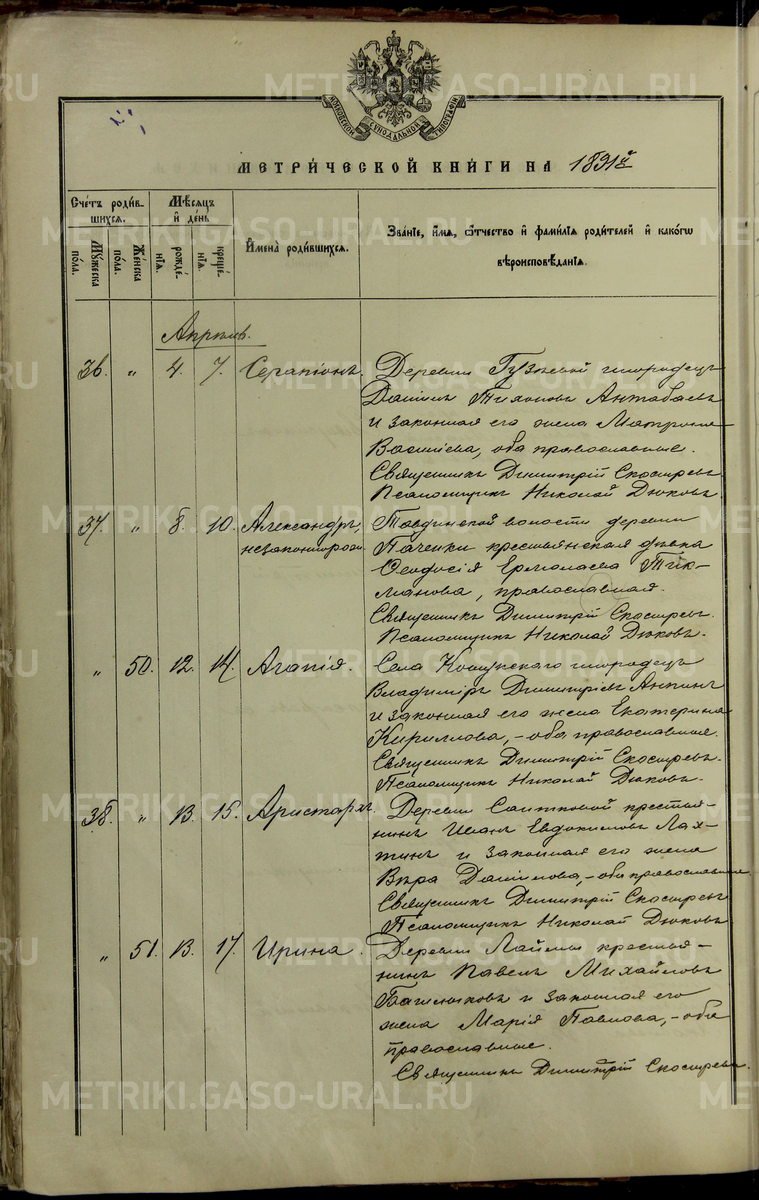 МЕТРИ́ЧЕСКОЙ КНИ́ГИ НА 1891й
Сче́тъ роди́в-
шихся.
Мꙋ́жеска
по́ла.
Же́нска
по́ла.
Мѣ́сяцъ
и҆ де́нь
рожде́-
нїя.
креще́-
нїя.
И҆мена̀ роди́вшихся.
Зва́нїе, и҆́мя, ѻ҆́тчество и҆ фами́лїя роди́телей и҆ како́гѡ
вѣроисповѣ́данїя.
Апрѣль.
36. " 4. 7. Серапіонъ.
Деревни Гузѣевой инородецъ
Даніилъ Тихоновъ Антабаевъ
и законная его жена Матрона
Васильева, оба православные.
Священникъ Димитрій Скосыревъ
Псаломщикъ Николай Дюковъ.
37. " 8. 10. Александръ,
незаконнорож.
Тавдинской волости деревни
Паченки крестьянская дѣвка
Ѳеодосія Ермолаева Тик-
манова, православная.
Священникъ Димитрій Скосыревъ.
Псаломщикъ Николай Дюковъ.
" 50. 12. 14. Агапія.
Села Кошукскаго инородецъ
Владиміръ Димитріевъ Анпинъ
и законная его жена Екатерина
Кириллова, – оба православные.
Священникъ Димитрій Скосыревъ.
Псаломщикъ Николай Дюковъ.
38. " 13. 15. Аристархъ.
Деревни Саитковой крестья-
нинъ Иванъ Евдокимовъ Лах-
тинъ и законная его жена
Вѣра Данилова, – оба православные
Священникъ Димитрій Скосыревъ
Псаломщикъ Николай Дюковъ
" 51. 13. 17. Ирина.
Деревни Лаймы крестья-
нинъ Павелъ Михайловъ
и законная его
жена Марія Павлова, – оба
православные.
Священникъ Димитрій Скосыревъ.
METRIKI.GASO-URAL.RU